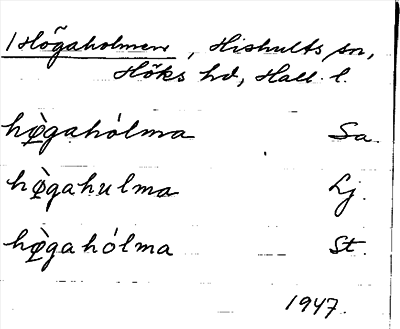 /Högaholmen, Hishults sn,
Höks hd, Hall. l.
hø̀gahólma Sa.
hø̀gahulma Lj.
hø̀gahólma St.
1947.